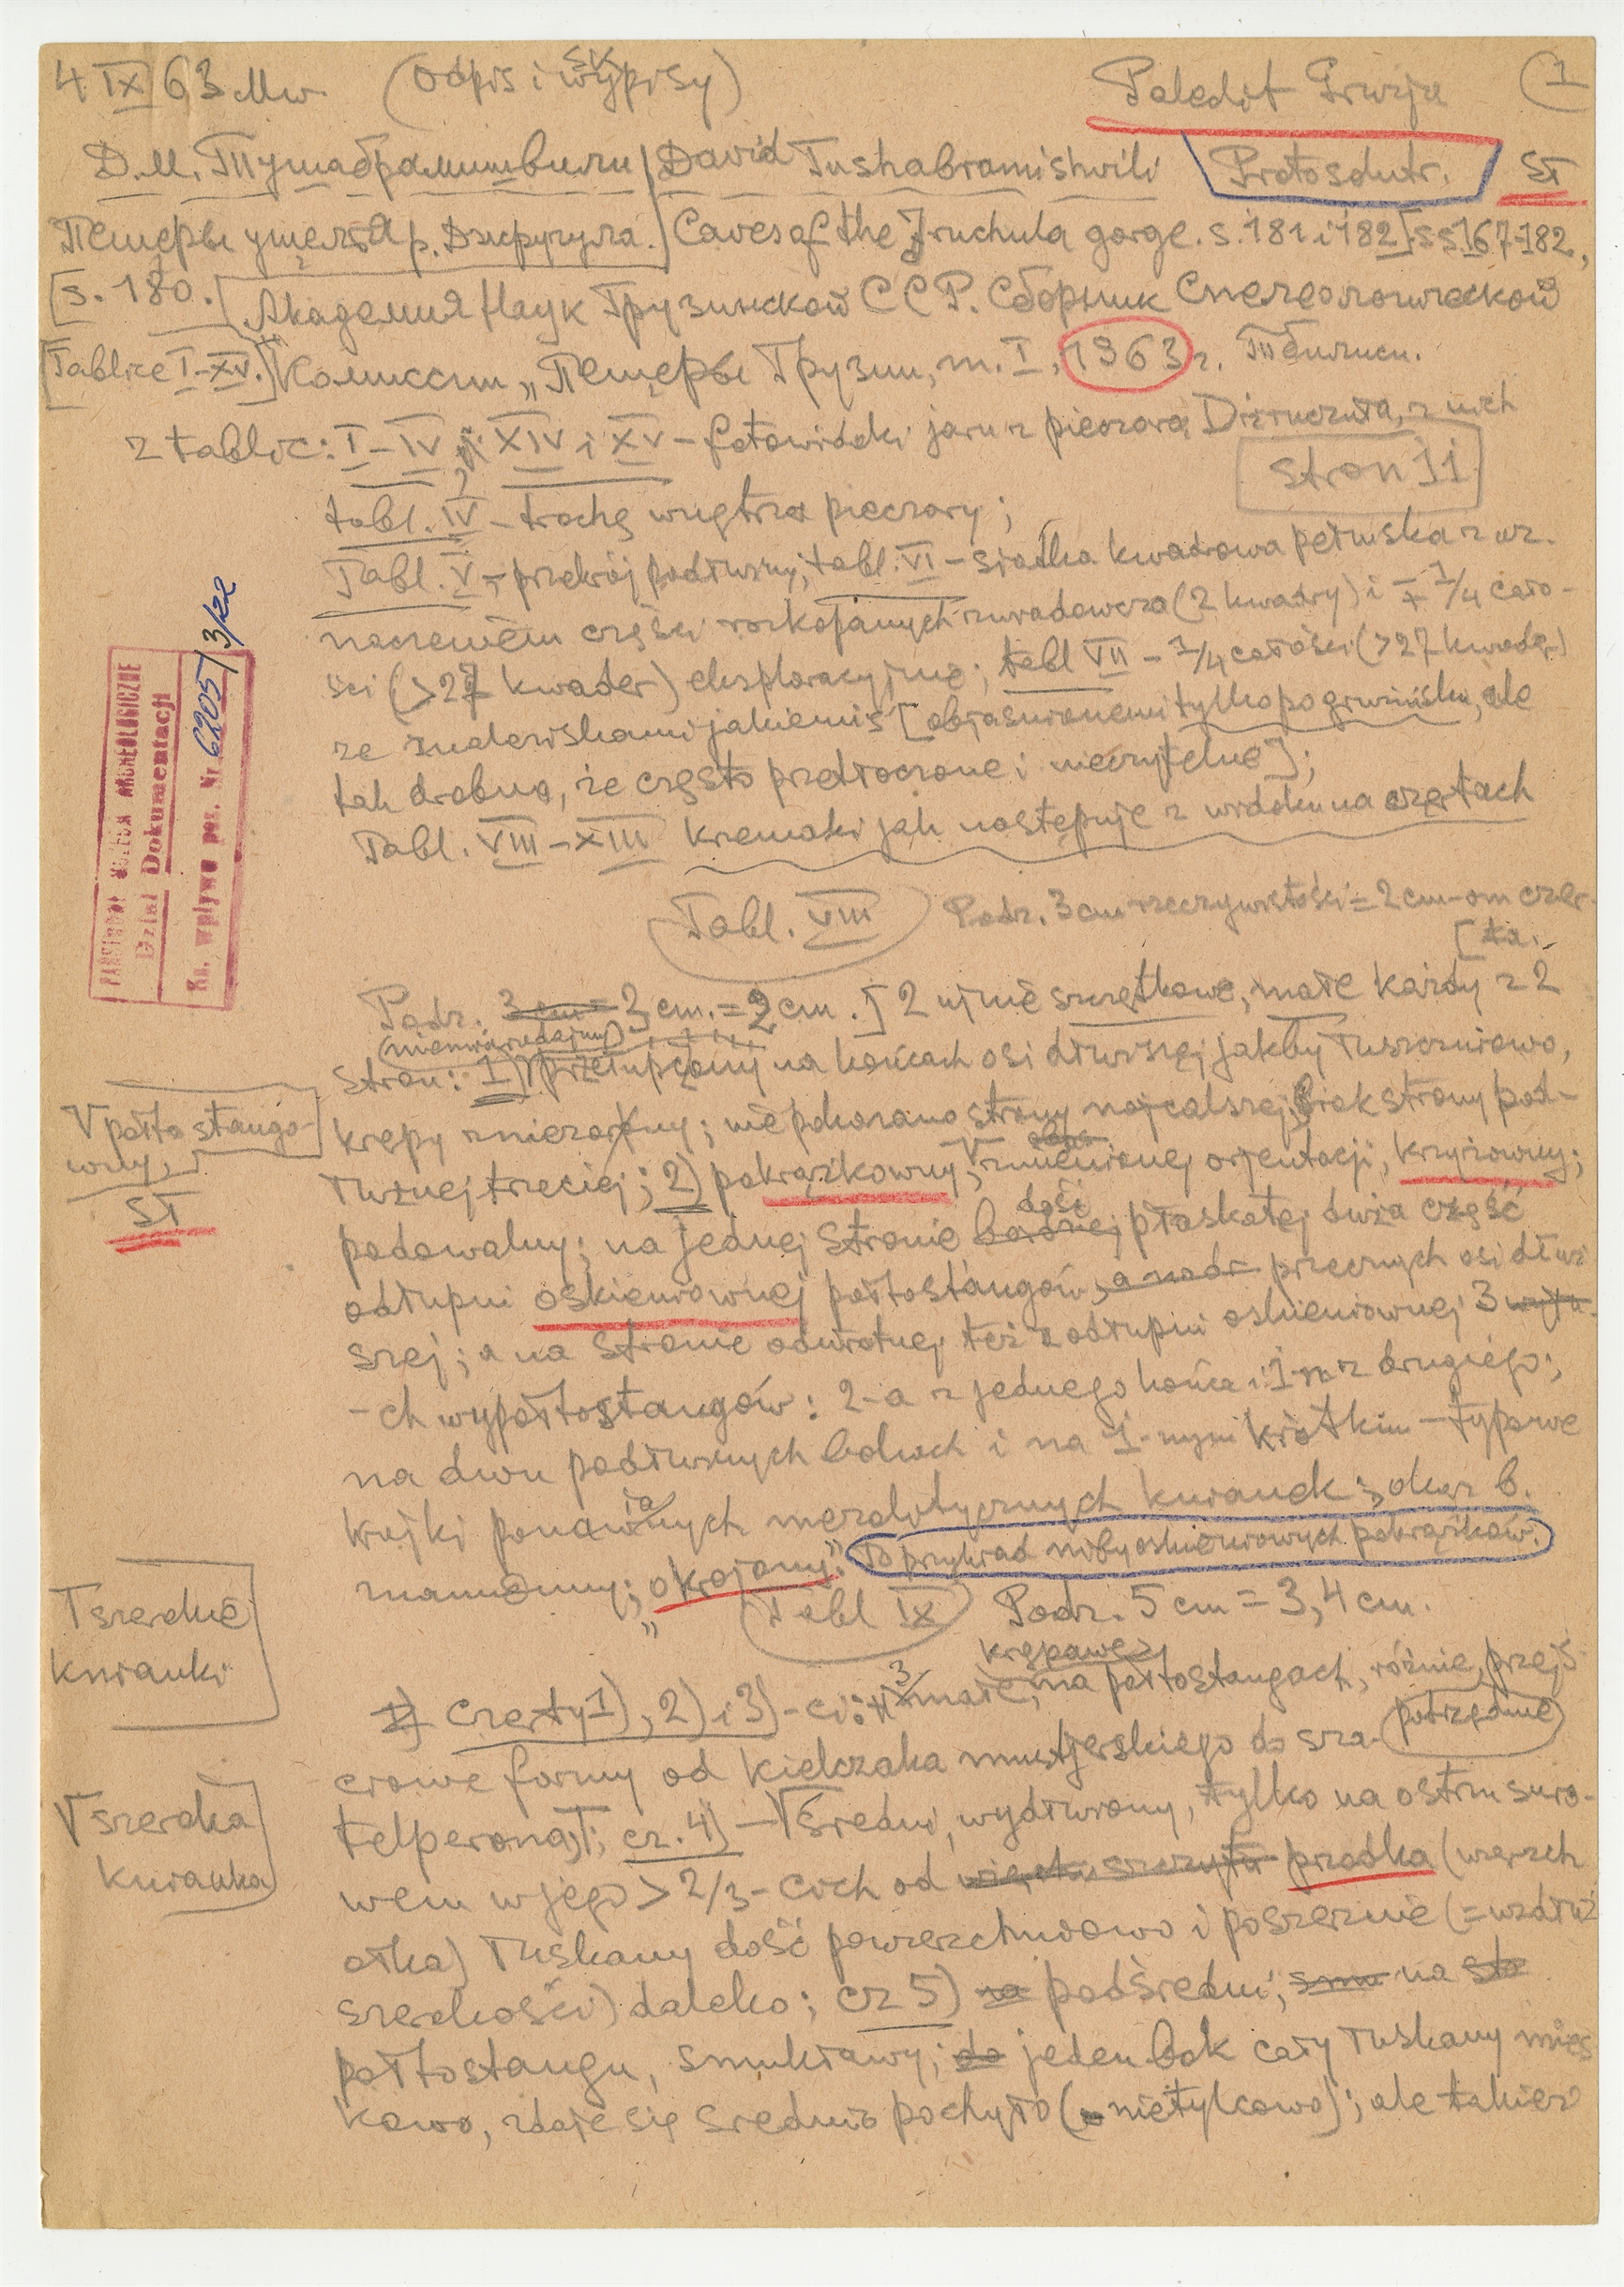 4 IX 63 Mw. (Odpis i wypisy) Paleolit Gruzja 1
Д.М. Тушабрамишвили / David Tushabramishvili Protosolutr. ST
Пещеры ущелья р. Джручула. Caves of the Jruchula gorge. s. 181 i 182] ss 167-182,
[s. 180.] Академия Наук Грузинской ССР. Сборник Спелеологической
[Tablice I-XV.] Комиссии „Пещеры Грузии, т. I, 1963 г. Тбилиси.
z tablic: I-IV i XIV i XV - fotowidoki jaru z pieczorą Dżruczuła, z nich
stron 11
tabl. IV - trochę wnętrza pieczory;
Tabl. V - przekrój podłużny, tabl. VI - siatka kwadrowa
naczeniem części rozkopanych zwiadowczo (2 kwadry) i ∓ 1/4 cało-
ści (>27 kwader) eksploracyjnie; tabl VII - 1/4 całości (>27 kwader)
ze znaleziskami jakiemiś [objaśnionemi tylko po gruzińsku, ale
tak drobno, że często przetłoczone i nieczytelne];
Tabl. VIII-XIII krzemaki jak następuje z widoku na czertach
Tabl. VIII Podz. 3 cm rzeczywistości = 2 cm-om czer-
[ta.
Podz. 3 cm = 3 cm. = 2 cm. ] 2 szczętkowe, małe każdy z 2
stron: 1) przełupany na końcach osi dłuższej jakby łuszczniowo,
V połtostango-
wny,
ST
krępy; nie pokazano strony najcalszej; brak strony pod-
łużnej trzeciej; 2) pokrążkowny, zmienionej orjentacji, krzyżowny;
podowalny; na jednej stronie dość płaskatej duża część
odłupni oskieniownej połtostangów, przecznych osi dłuż
szej; a na stronie odwrotnej też z odłupni oskieniownej 3
-ch wypołtostangów: 2-a z jednego końca i 1-no z drugiego;
na dwu podłużnych bokach i na 1-nym krótkim - typowe
krojki mezolitycznych kniauek; okaz b.
„okrojany” To przykład niby oskieniowych pokrążków.
Tabl IX Podz. 5 cm = 3,4 cm.
T szerdkie
kniauki
krępawe
Czerty 1), 2) i 3) - ci: 3 małe, na połtostangach, różnie, przejś
potrzednie
ciowe formy od kielczaka mustjerskiego do sza-
telperona T; cz. 4) - V średni, wydłużony, tylko na ostrzu suro-
V szerdka
kniauka
wem w jego > 2/3-cich od przodka (wierzch
ołka) łuskany dość powierzchniowo i poszerznie (= wzdłuż
szerokości) daleko; cz 5) podśredni; na
połtostangu, smukławy; jeden bok cały łuskany
kowo, zdaje się średnio pochyło (nietylcowo); ale takież
PAŃSTWOWE MUZEUM ARCHEOLOGICZNE
Dział Dokumentacji
Ks. wpływu poz. Nr 6205/3/22